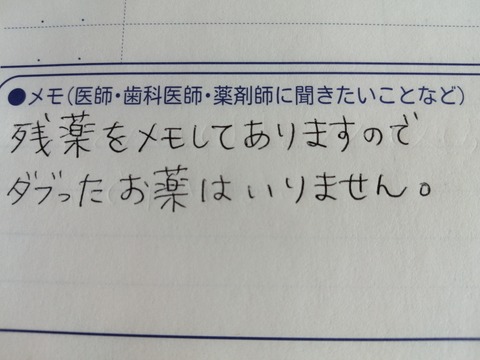 ●メモ(医師・歯科医師・薬剤師に聞きたいことなど)
残薬をメモしてありますので
ダブったお薬はいりません。